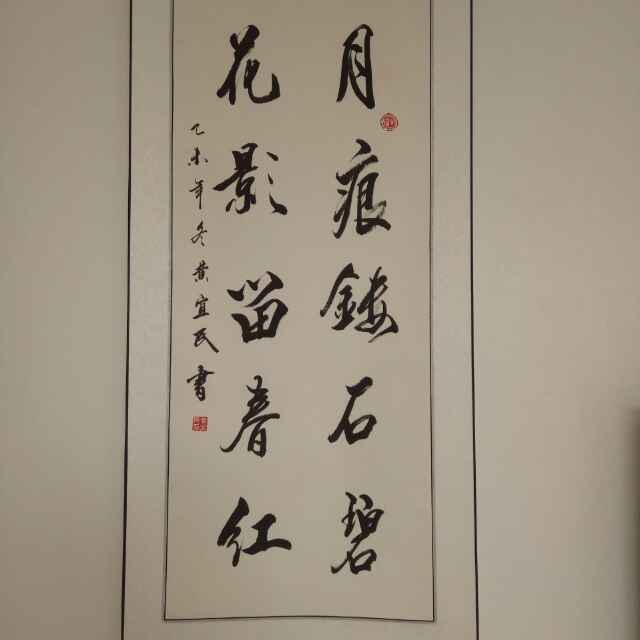 月痕鏤石碧
花影留春红
乙未年冬黄宜民書